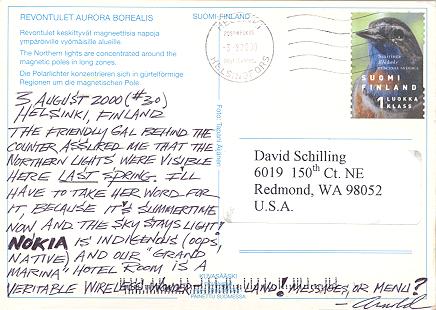 REVONTULET AURORA BOREALIS
SUOMI-FINLAND
Revontulet keskittyvät magneettisia napoja
ympäröiville vyömäisille alueille.
The Northern lights are concentrated around the
magnetic poles in long zones.
Die Polarlichter konzentrieren sich in gürtelförmige
Regionen um die magnetischen Pole.
HELSINKI
HELSINGFORS
Sinirinta
Blåhake
SUOMI
FINLAND
1 LUOKKA
KLASS
3 AUGUST 2000 (#30)
HELSINKI, FINLAND
THE FRIENDLY GAL BEHIND THE
COUNTER ASSURED ME THAT THE
NORTHERN LIGHTS WERE VISIBLE
HERE LAST SPRING. I'LL
HAVE TO TAKE HER WORD FOR
IT, BECAUSE IT'S SUMMERTIME
NOW AND THE SKY STAYS LIGHT!
NOKIA IS INDIGENOUS (OOPS,
NATIVE) AND OUR "GRAND
MARINA" HOTEL ROOM IS A
VERITABLE WIRELESS WONDER LAND! MESSAGES, OR MENU?
- Arnold
David Schilling
6019 150th Ct. NE
Redmond, WA 98052
U.S.A.
KUVASÄÄSKI
PAINETTU SUOMESSA